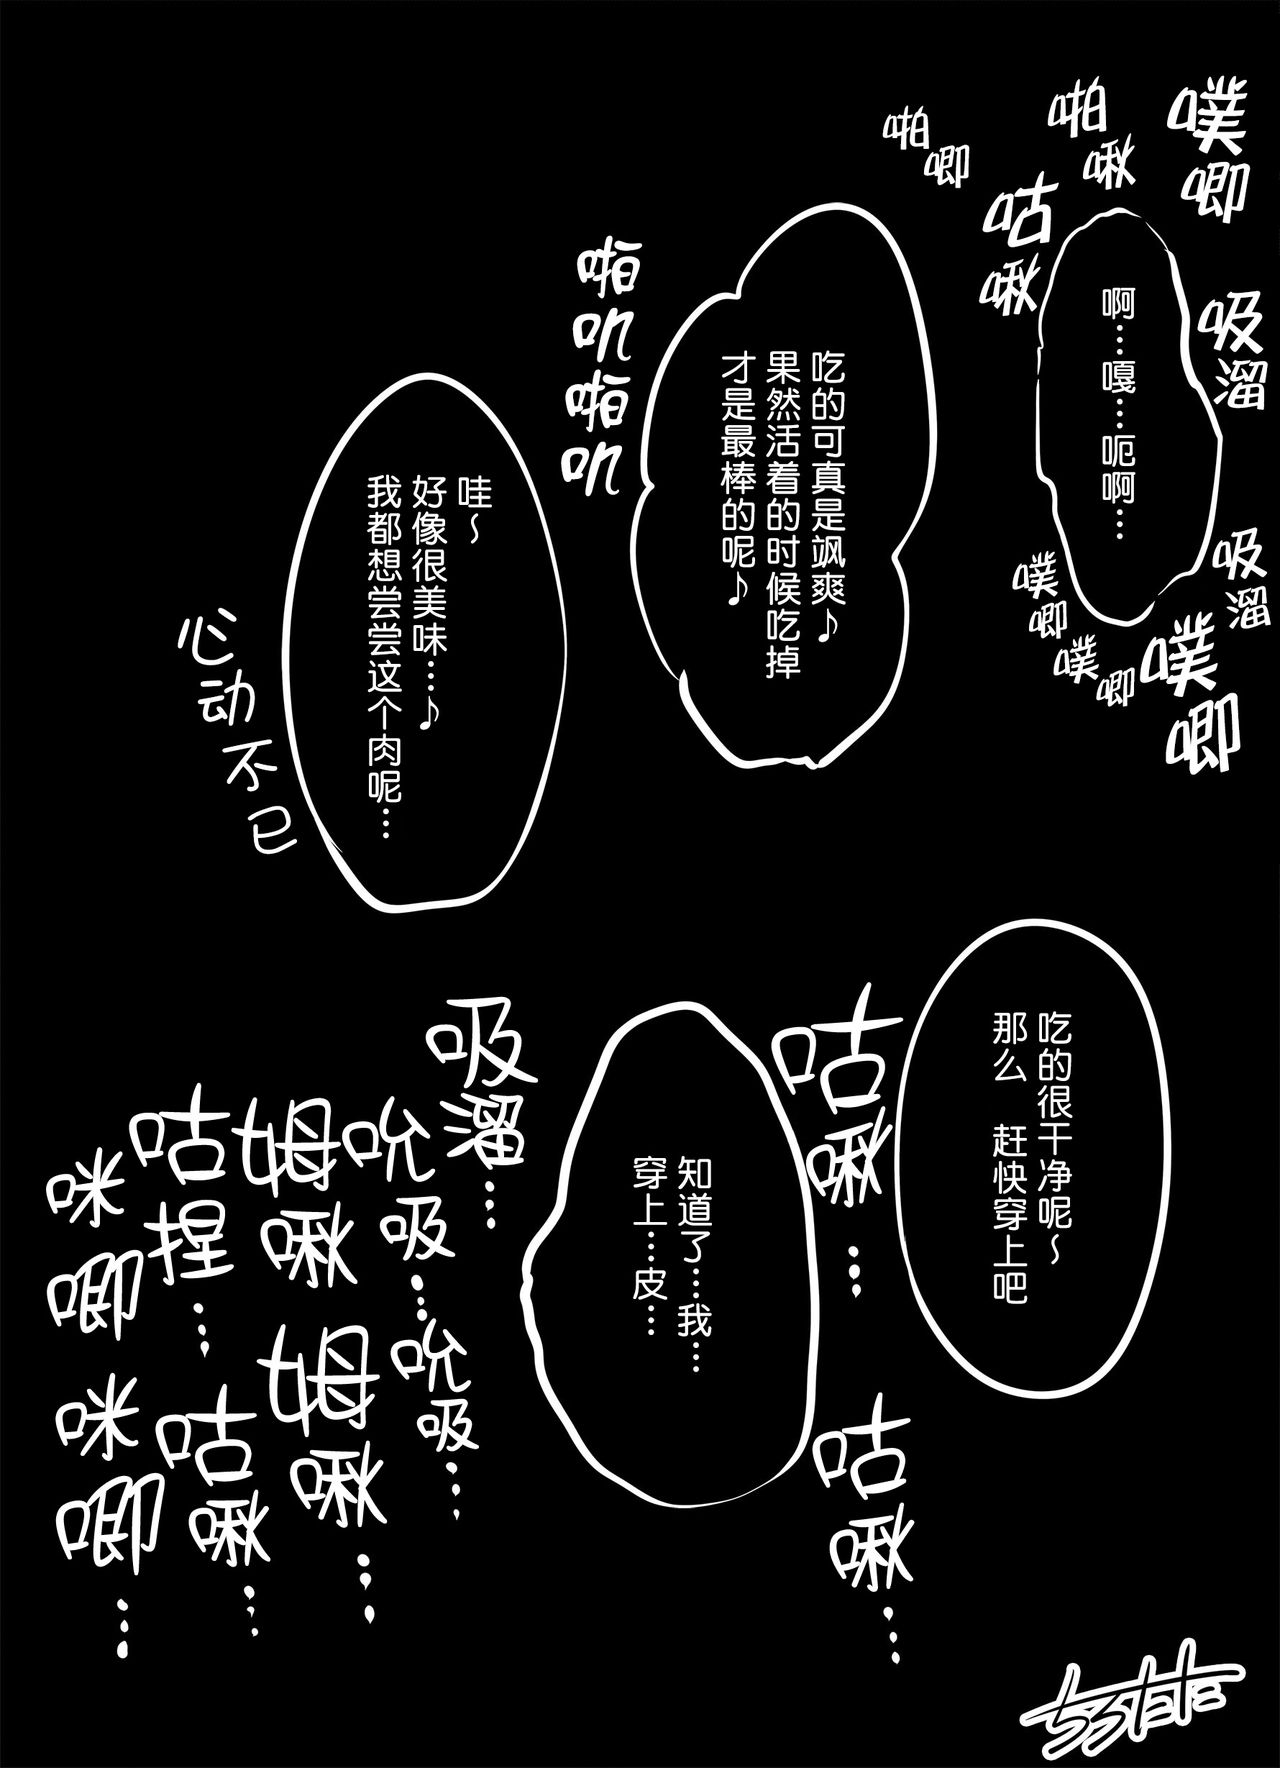 噗唧
啪啾
啪唧
咕啾
啊…嘎…呃啊…
吸溜
吸溜
噗唧
噗唧
噗唧
吃的可真是飒爽♪
果然活着的时候吃掉
才是最棒的呢♪
啪叽
啪叽
哇～
好像很美味…♪
我都想尝尝这个肉呢…
心动不已
吃的很干净呢～
那么 赶快穿上吧
咕啾…
咕啾…
知道了…我…
穿上…皮…
吸溜…
吮吸…
吮吸…
姆啾
姆啾…
咕捏…
咕啾…
咪唧
咪唧…
ちろたた